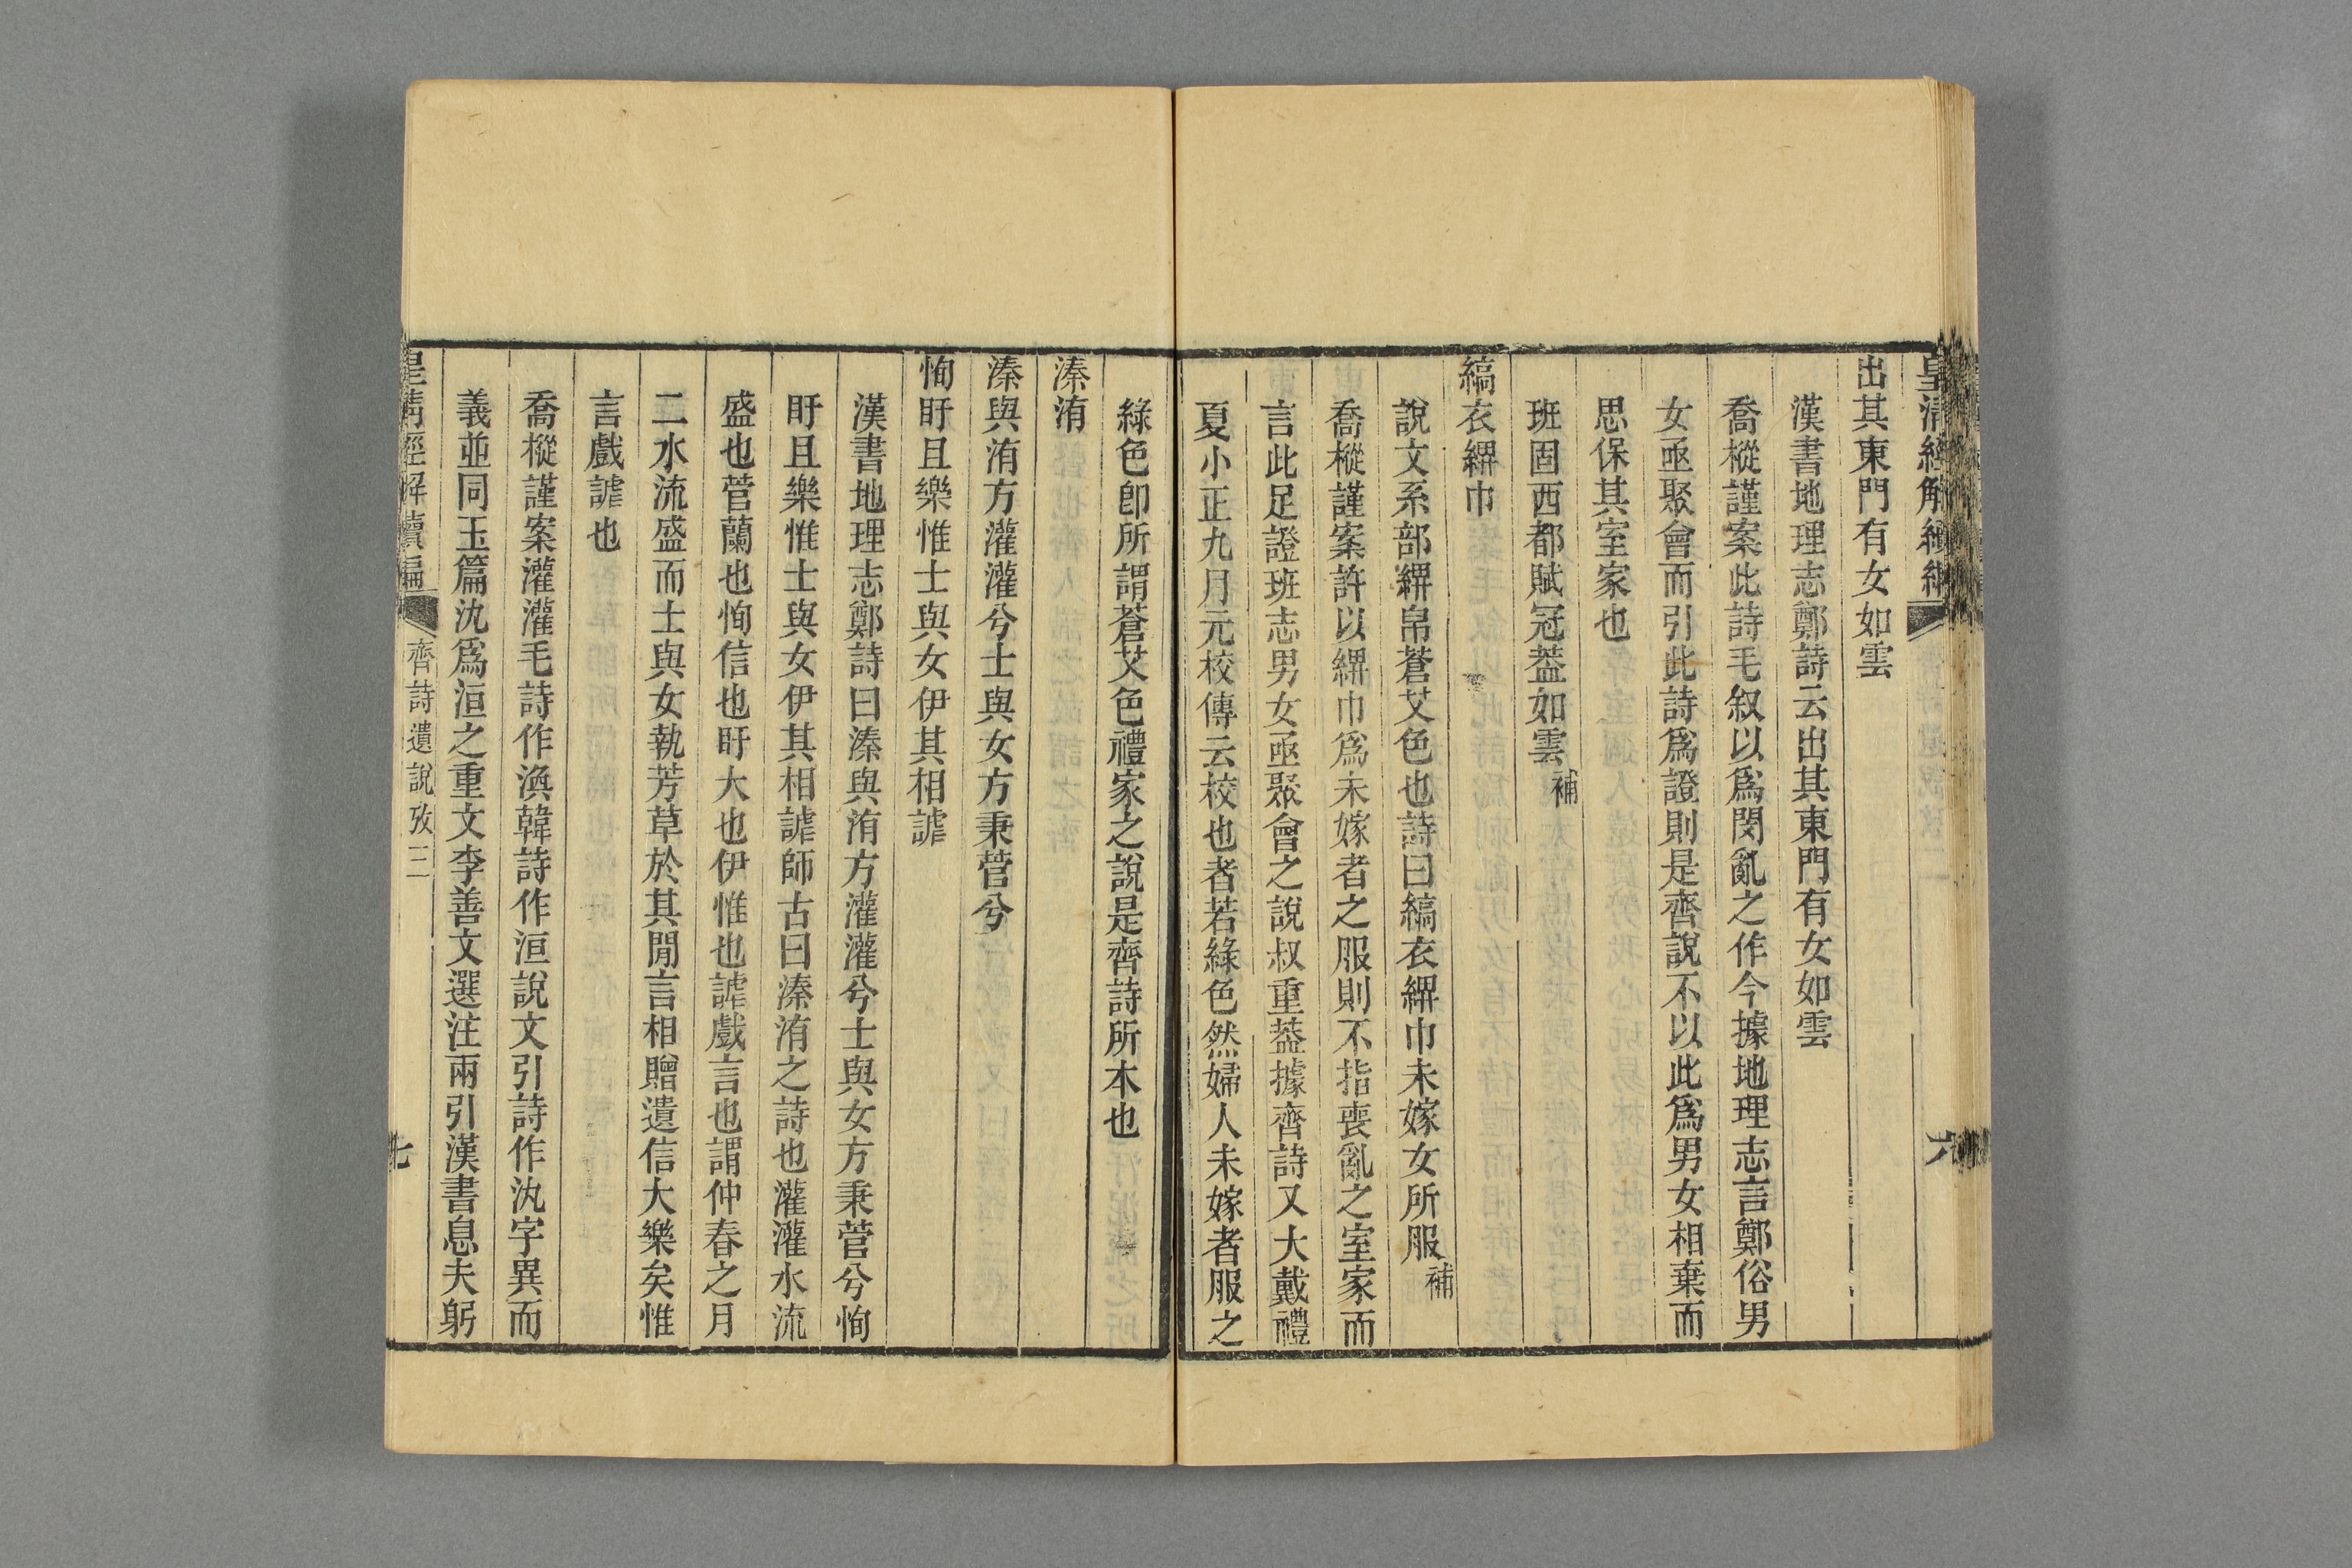 皇清經解續編
六
出其東門有女如雲
漢書地理志鄭詩云出其東門有女如雲
喬樅謹案此詩毛叙以爲閔亂之作今據地理志言鄭俗男
女亟聚會而引此詩爲證則是齊說不以此爲男女相棄而
思保其室家也
班固西都賦冠葢如雲補
縞衣綥巾
說文系部綥帛蒼艾色也詩曰縞衣綥巾未嫁女所服補
喬樅謹案許以綥巾爲未嫁者之服則不指喪亂之室家而
言此足證班志男女亟聚會之說叔重葢據齊詩又大戴禮
夏小正九月元校傳云校也者若綠色然婦人未嫁者服之
綠色卽所謂蒼艾色禮家之說是齊詩所本也
溱洧
溱與洧方灌灌兮士與女方秉菅兮
恂盱且樂惟士與女伊其相謔
漢書地理志鄭詩曰溱與洧方灌灌兮士與女方秉菅兮恂
盱且樂惟士與女伊其相謔師古曰溱洧之詩也灌灌水流
盛也菅蘭也恂信也盱大也伊惟也謔戲言也謂仲春之月
二水流盛而士與女執芳草於其閒言相贈遺信大樂矣惟
言戲謔也
喬樅謹案灌灌毛詩作渙韓詩作洹說文引詩作汍字異而
義並同玉篇汍爲洹之重文李善文選注兩引漢書息夫躬
皇淸經解續編
齊詩遺說攷二
七